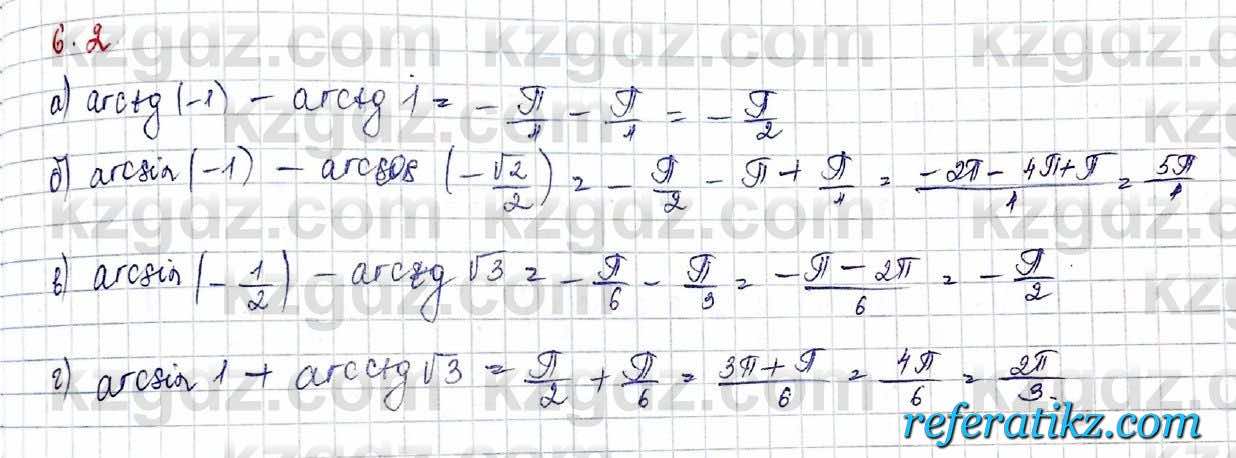 6.2
а) arctg(-1) - arctg 1 = - π/4 - π/4 = - π/2
б) arcsin(-1) - arccos(-√2/2) = - π/2 - π + π/4 = (-2π - 4π + π)/4 = 5π/4
в) arcsin(-1/2) - arctg √3 = - π/6 - π/3 = (-π - 2π)/6 = - π/2
г) arcsin 1 + arcctg √3 = π/2 + π/6 = (3π + π)/6 = 4π/6 = 2π/3.
kzgdz.com
referatikz.com